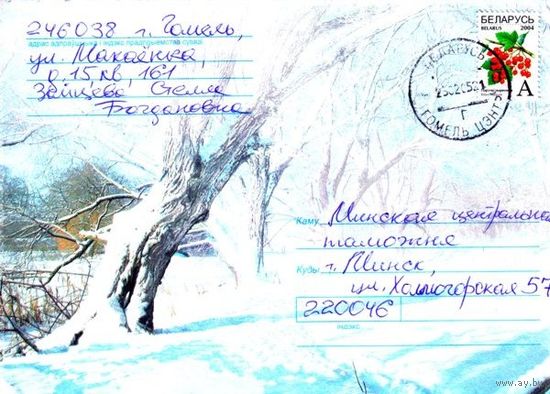 246038 г. Гомель,
адрас адпраўшчыка і індэкс прадпрыемства сувязі
ул. Макаёнка,
д. 15 кв. 161
Зайцева Стелла
Богдановна
БЕЛАРУСЬ
BELARUS 2004
A
БЕЛАРУСЬ
Г
ГОМЕЛЬ ЦЭНТР
Каму Минская центральная
таможня
Куды г. Минск,
ул. Холмогорская 57
220046
індэкс
www.ay.by